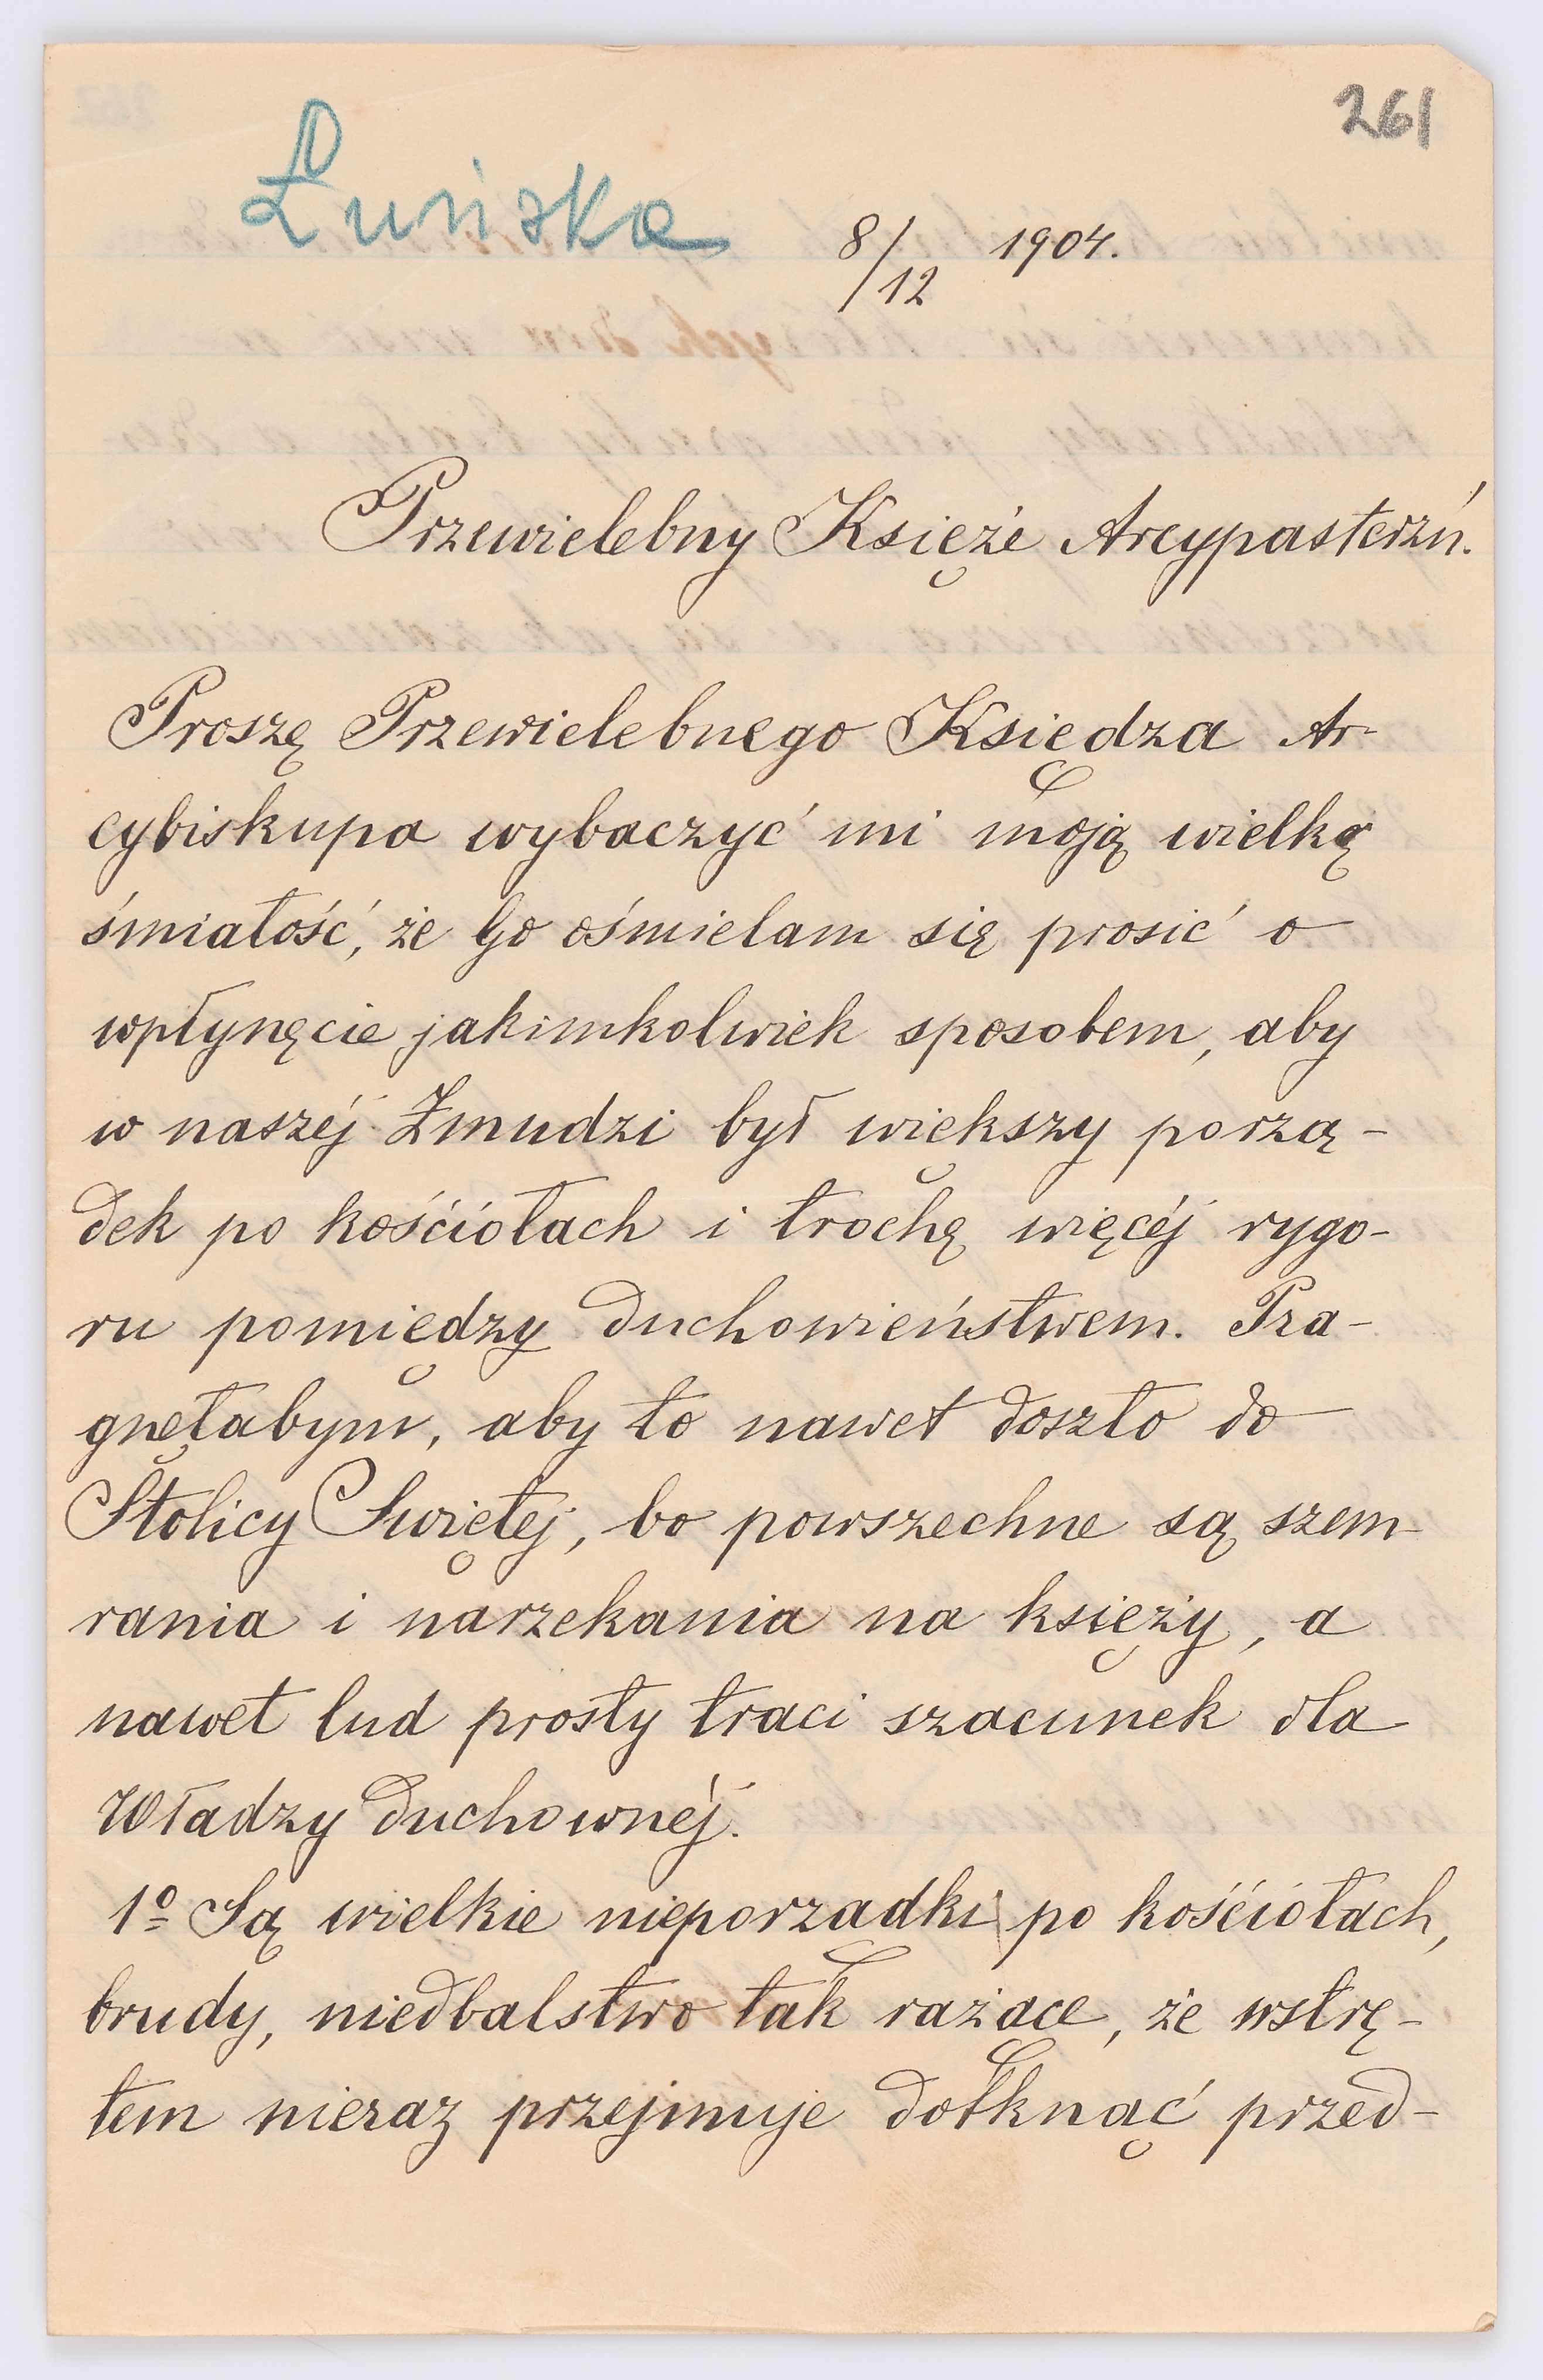 261
Łuńska
8/12 1904.
Przewielebny Księże Arcypasterzú.
Proszę Przewielebnego Księdza Ar-
cybiskupa wybaczyć mi moją wielką
śmiałość, że Go ośmielam się prosić o
wpłynęcie jakimkolwiek sposobem, aby
w naszéj Żmudzi był większy porzą-
dek po kośćiołach i trochę więcéj rygo-
ru pomiędzy duchowieństwem. Pra-
gnęłabym, aby to nawet doszło do
Stolicy Swiętej, bo powszechne są szem-
rania i narzekania na księży, a
nawet lud prosty traci szacunek dla
Władzy duchownéj.
1º Są wielkie nieporządki po kośćiołach,
brudy, niedbalstwo tak rażące, że wstrę-
tem nieraz przejmuje dotknąć przed-